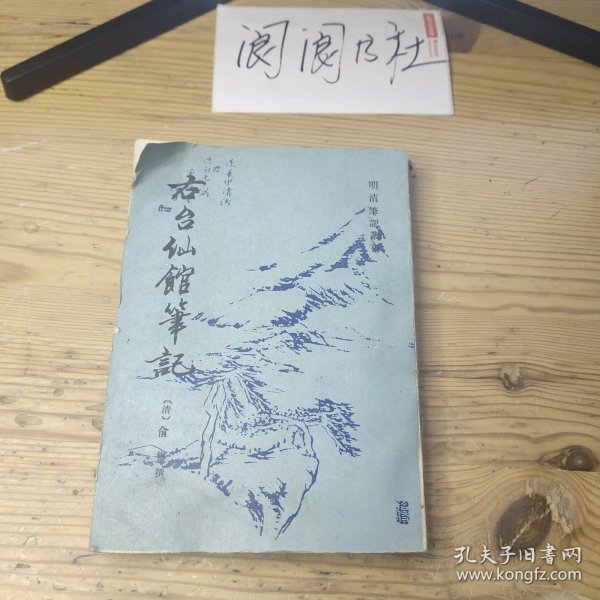 阆阆乃社
明清筆記叢書
右台仙館筆記
〔清〕俞樾撰
孔夫子旧书网
www.kongfz.com